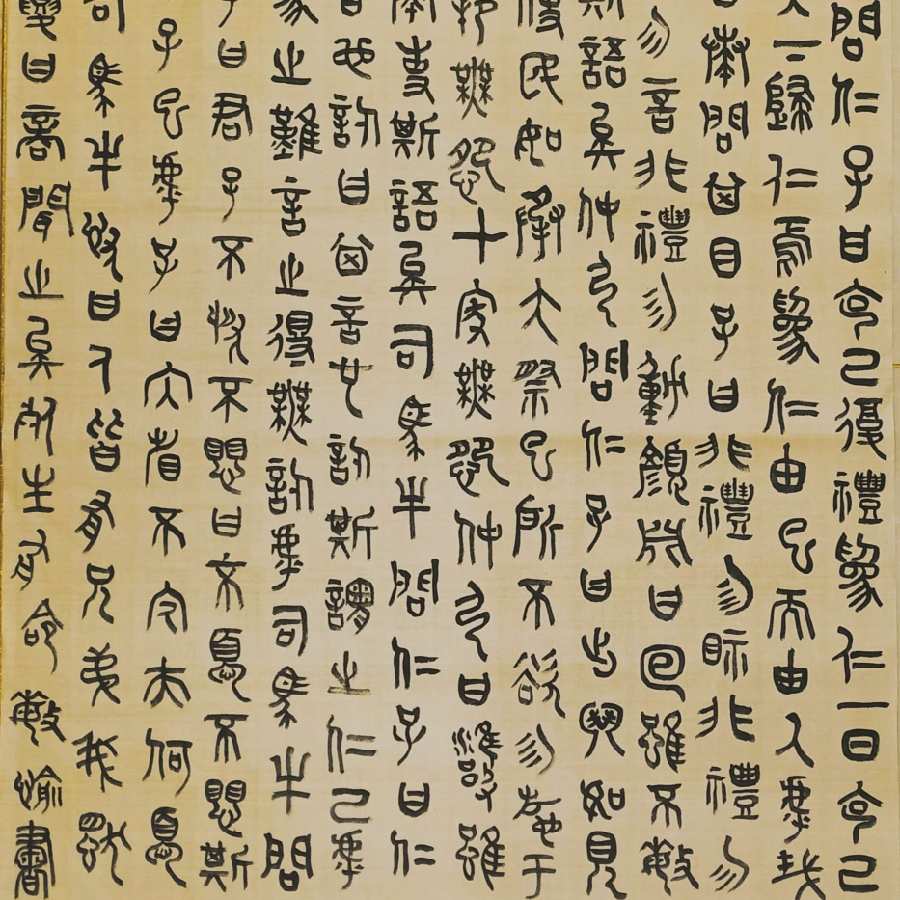 問仁子曰克己復禮為仁一日克己
天下歸仁焉為仁由己而由人乎哉
請問其目子曰非禮勿視非禮勿
勿言非禮勿動顏淵曰回雖不敏
斯語矣仲弓問仁子曰出門如見
使民如承大祭己所不欲勿施于
邦無怨在家無怨仲弓曰雍雖
請事斯語矣司馬牛問仁子曰仁
言也訒曰其言也訒斯謂之仁已乎
為之難言之得無訒乎司馬牛問
子曰君子不憂不懼曰不憂不懼斯
子已乎子曰內省不疚夫何憂
司馬牛憂曰人皆有兄弟我獨
夏曰商聞之矣死生有命 敏愉書